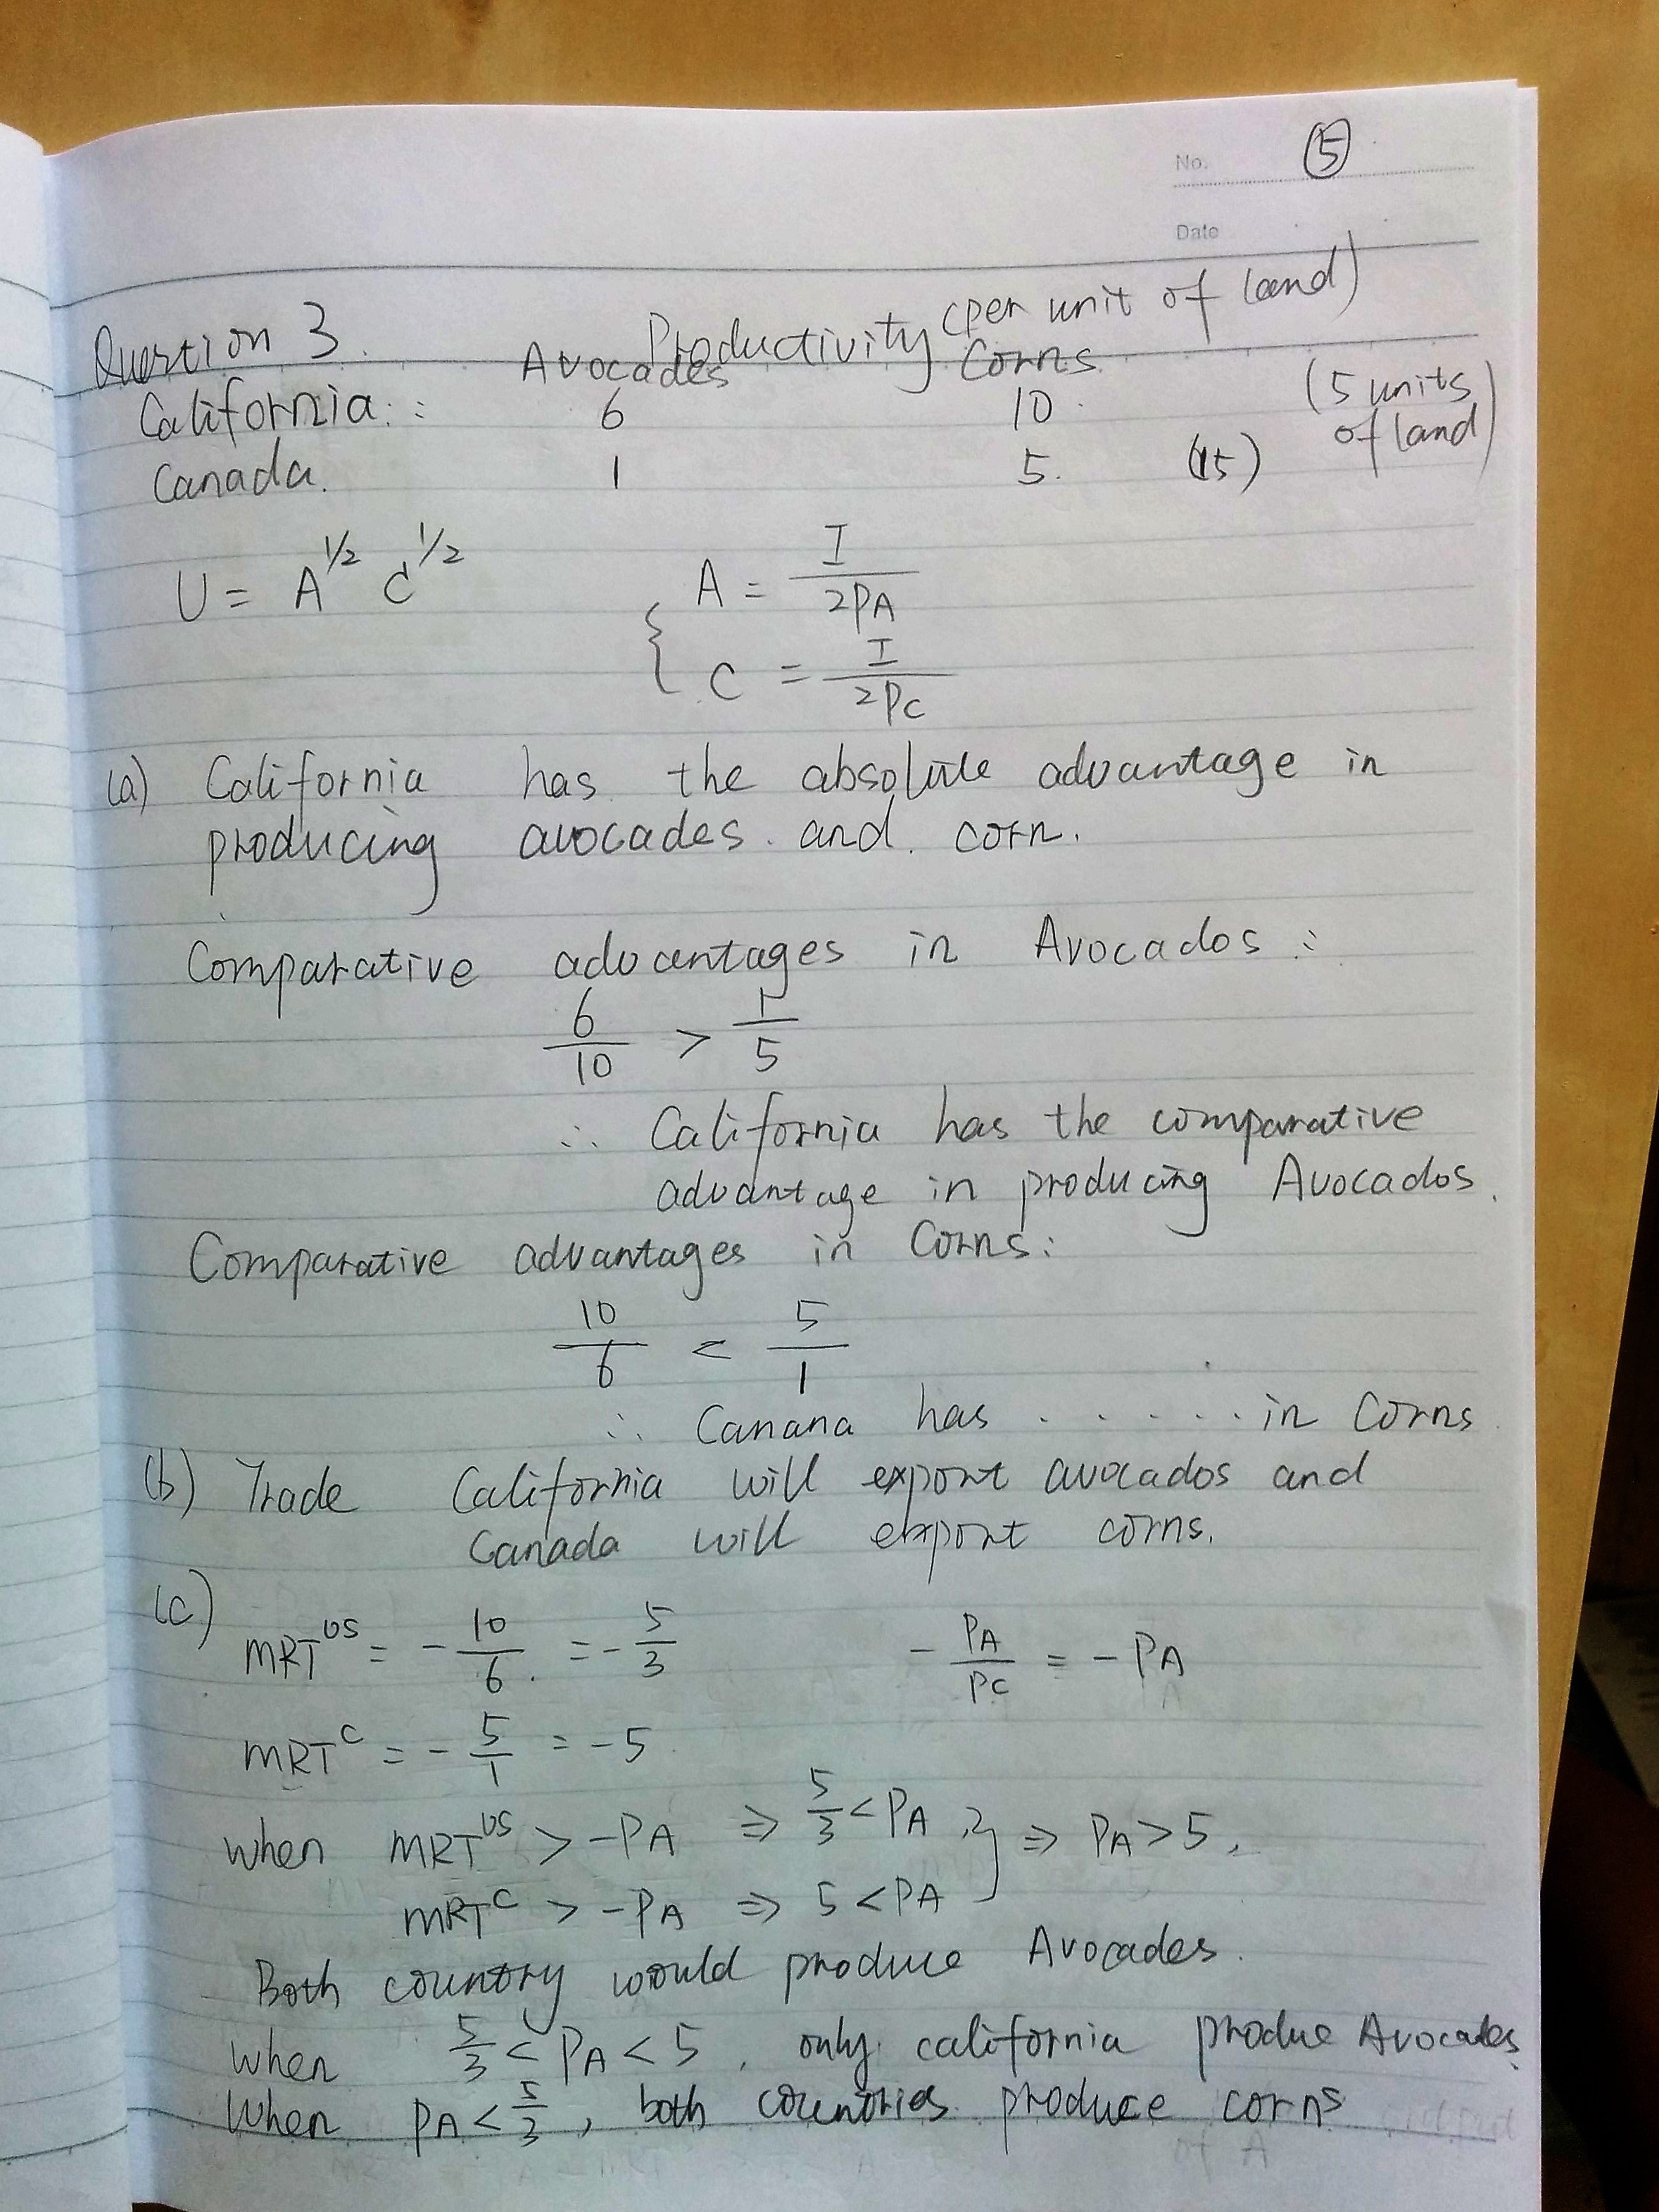 No. ⑤
Date
Question 3. Productivity (per unit of land)
Avocades Corns
California: : 6 10 (5 units of land)
Canada. 1 5. (15)
U = A^1/2 C^1/2
{ A = I / 2PA
C = I / 2PC
(a) California has the absolute advantage in
producing avocades and corn.
Comparative advantages in Avocados :
6/10 > 1/5
∴ California has the comparative
advantage in producing Avocados.
Comparative advantages in Corns:
10/6 < 5/1
∴ Canana has . . . . . . in Corns
(b) Trade California will export avocados and
Canada will export corns.
(c) MRT^US = - 10/6 = - 5/3 - PA/PC = - PA
MRT^C = - 5/1 = -5
when MRT^US > -PA ⇒ 5/3 < PA } ⇒ PA > 5,
MRT^C > -PA ⇒ 5 < PA
Both country would produce Avocades.
when 5/3 < PA < 5, only california produe Avocades
when PA < 5/3, both countries produce corns